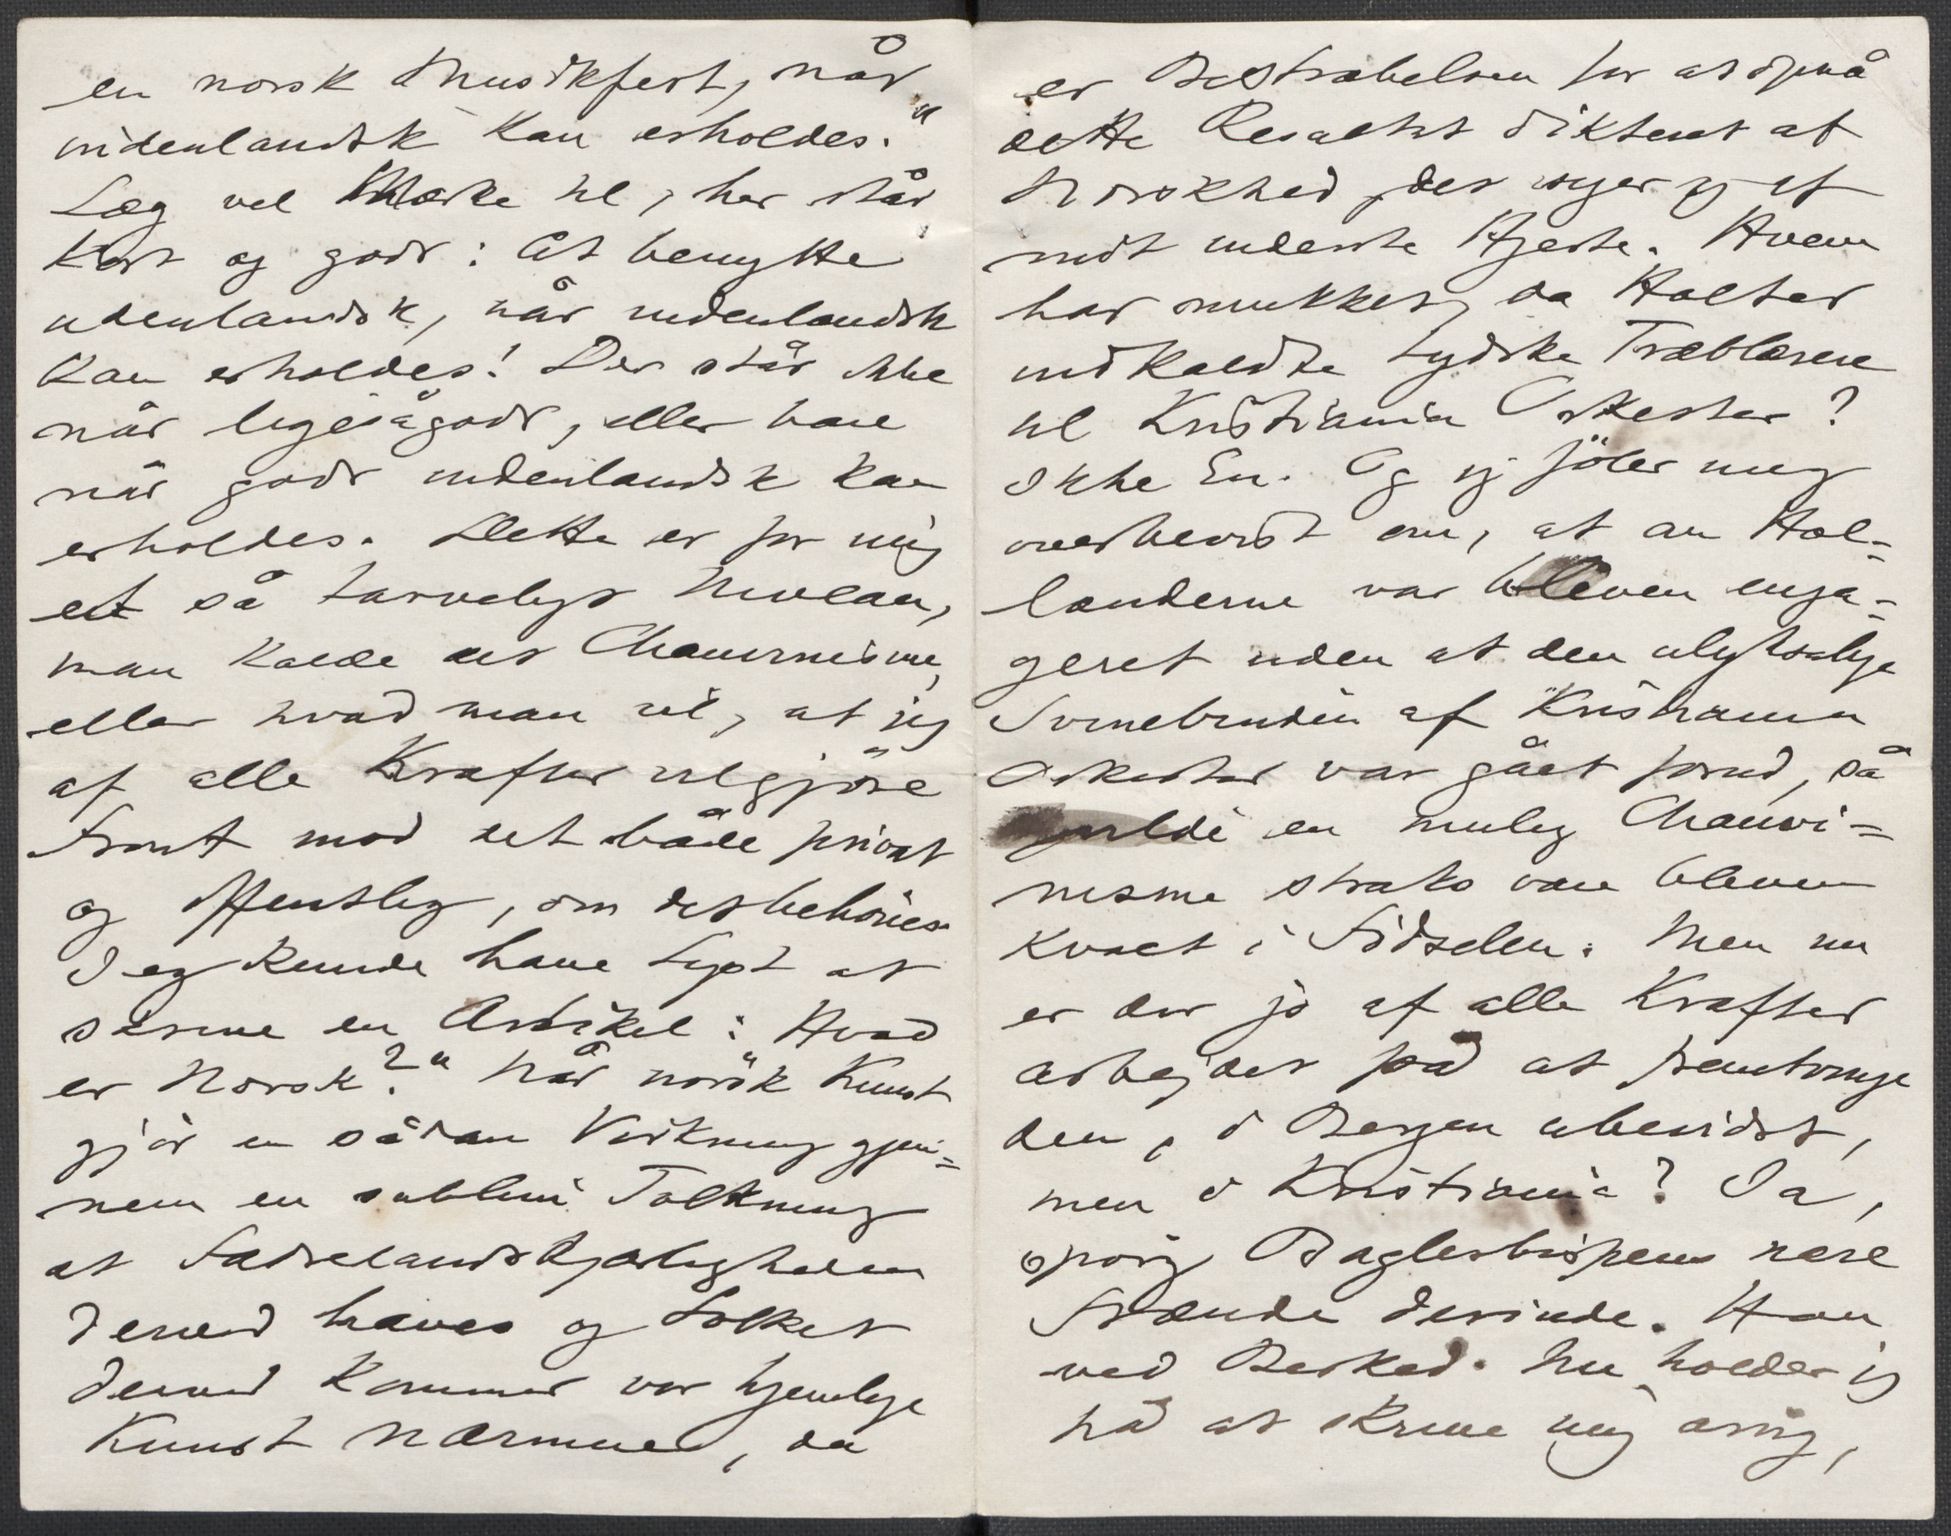 en norsk Musikfest, når
indenlandsk kan erholdes."
Læg vel Mærke til, her står
kort og godt: At benytte
udenlandsk, når indenlandsk
kan erholdes! Der står ikke
når ligesågodt, eller bare
når godt indenlandsk kan
erholdes. Dette er for mig
et så tarveligt Niveau,
man kalde det Chauvinisme,
eller hvad man vil, at jeg
af alle Kræfter vil gjöre
Front mod det både privat
og offentlig, om det behöves.
Jeg kunde have Lyst at
skrive en Artikel: "Hvad
er Norsk?" Når norsk Kunst
gjör en sådan Virkning gjen=
nem en sublim Tolkning
at Fædrelandskjærligheden
derved hæves og Folket
derved kommer vor hjemlige
Kunst nærmere, da
er Bestræbelsen for at opnå
dette Resultat dikteret af
Norskhed, det siger jeg af
mit inderste Hjerte. Hvem
har mukket, da Halvorsen
indkaldte tydske Træblæsere
til Kristiania Orkester?
Ikke En. Og jeg föler mig
overbevist om, at om Hol=
lænderne var bleven enga=
geret uden at den ulyksalige
Svinebinden af Kristiania
Orkester var gået forud, så
vilde en mulig Chauvi=
nisme straks være bleven
kvalt i Födselen. Men nu
er der jo af alle Kræfter
arbejdet på at fremtvinge
den, i Bergen ubevidst,
men i Kristiania? Ja,
spörg Baglerbispens nære
Frænde derinde. Han
ved Besked. Nu holder jeg
på at skrive mig arrig,